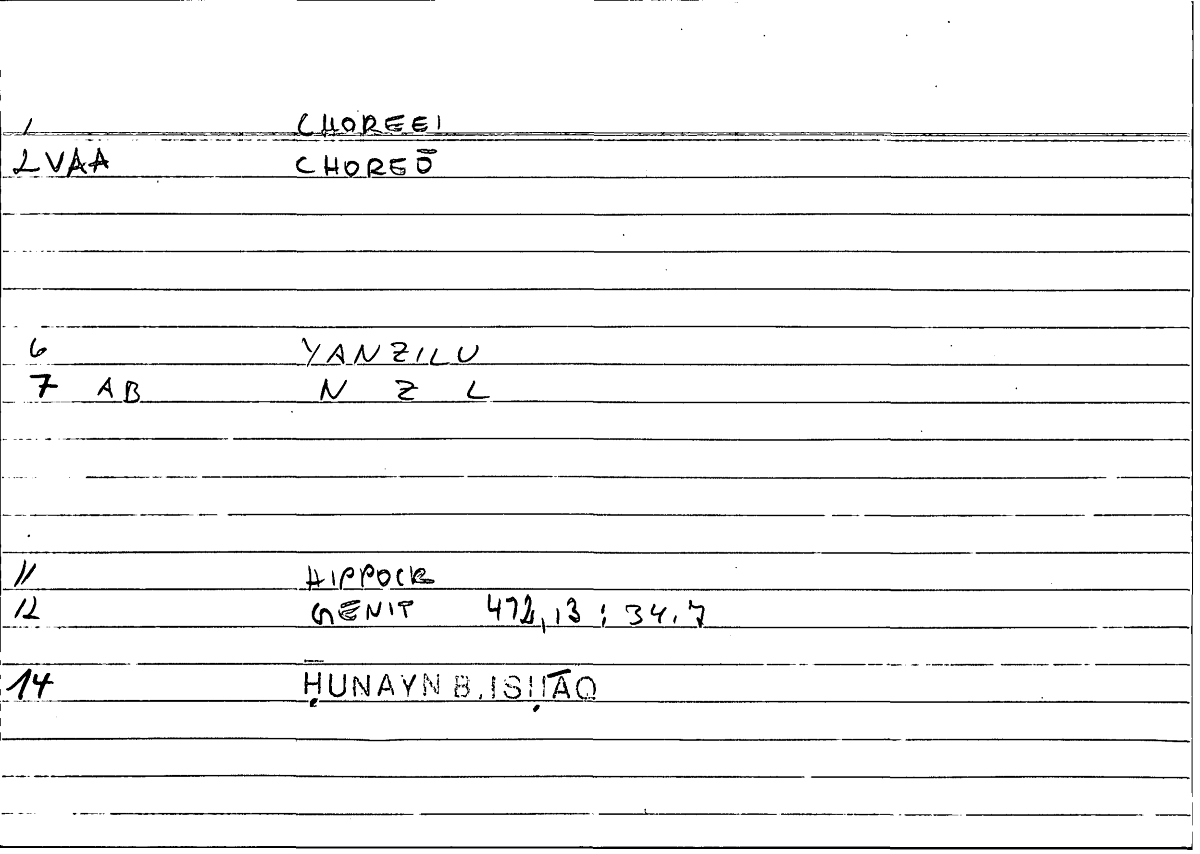 1 CHOREEI
2 VAA CHOREŌ
6 YANZILU
7 AB N Z L
11 HIPPOCR
12 GENIT 472,13 ; 34.7
14 ḤUNAYN B. ISḤĀQ